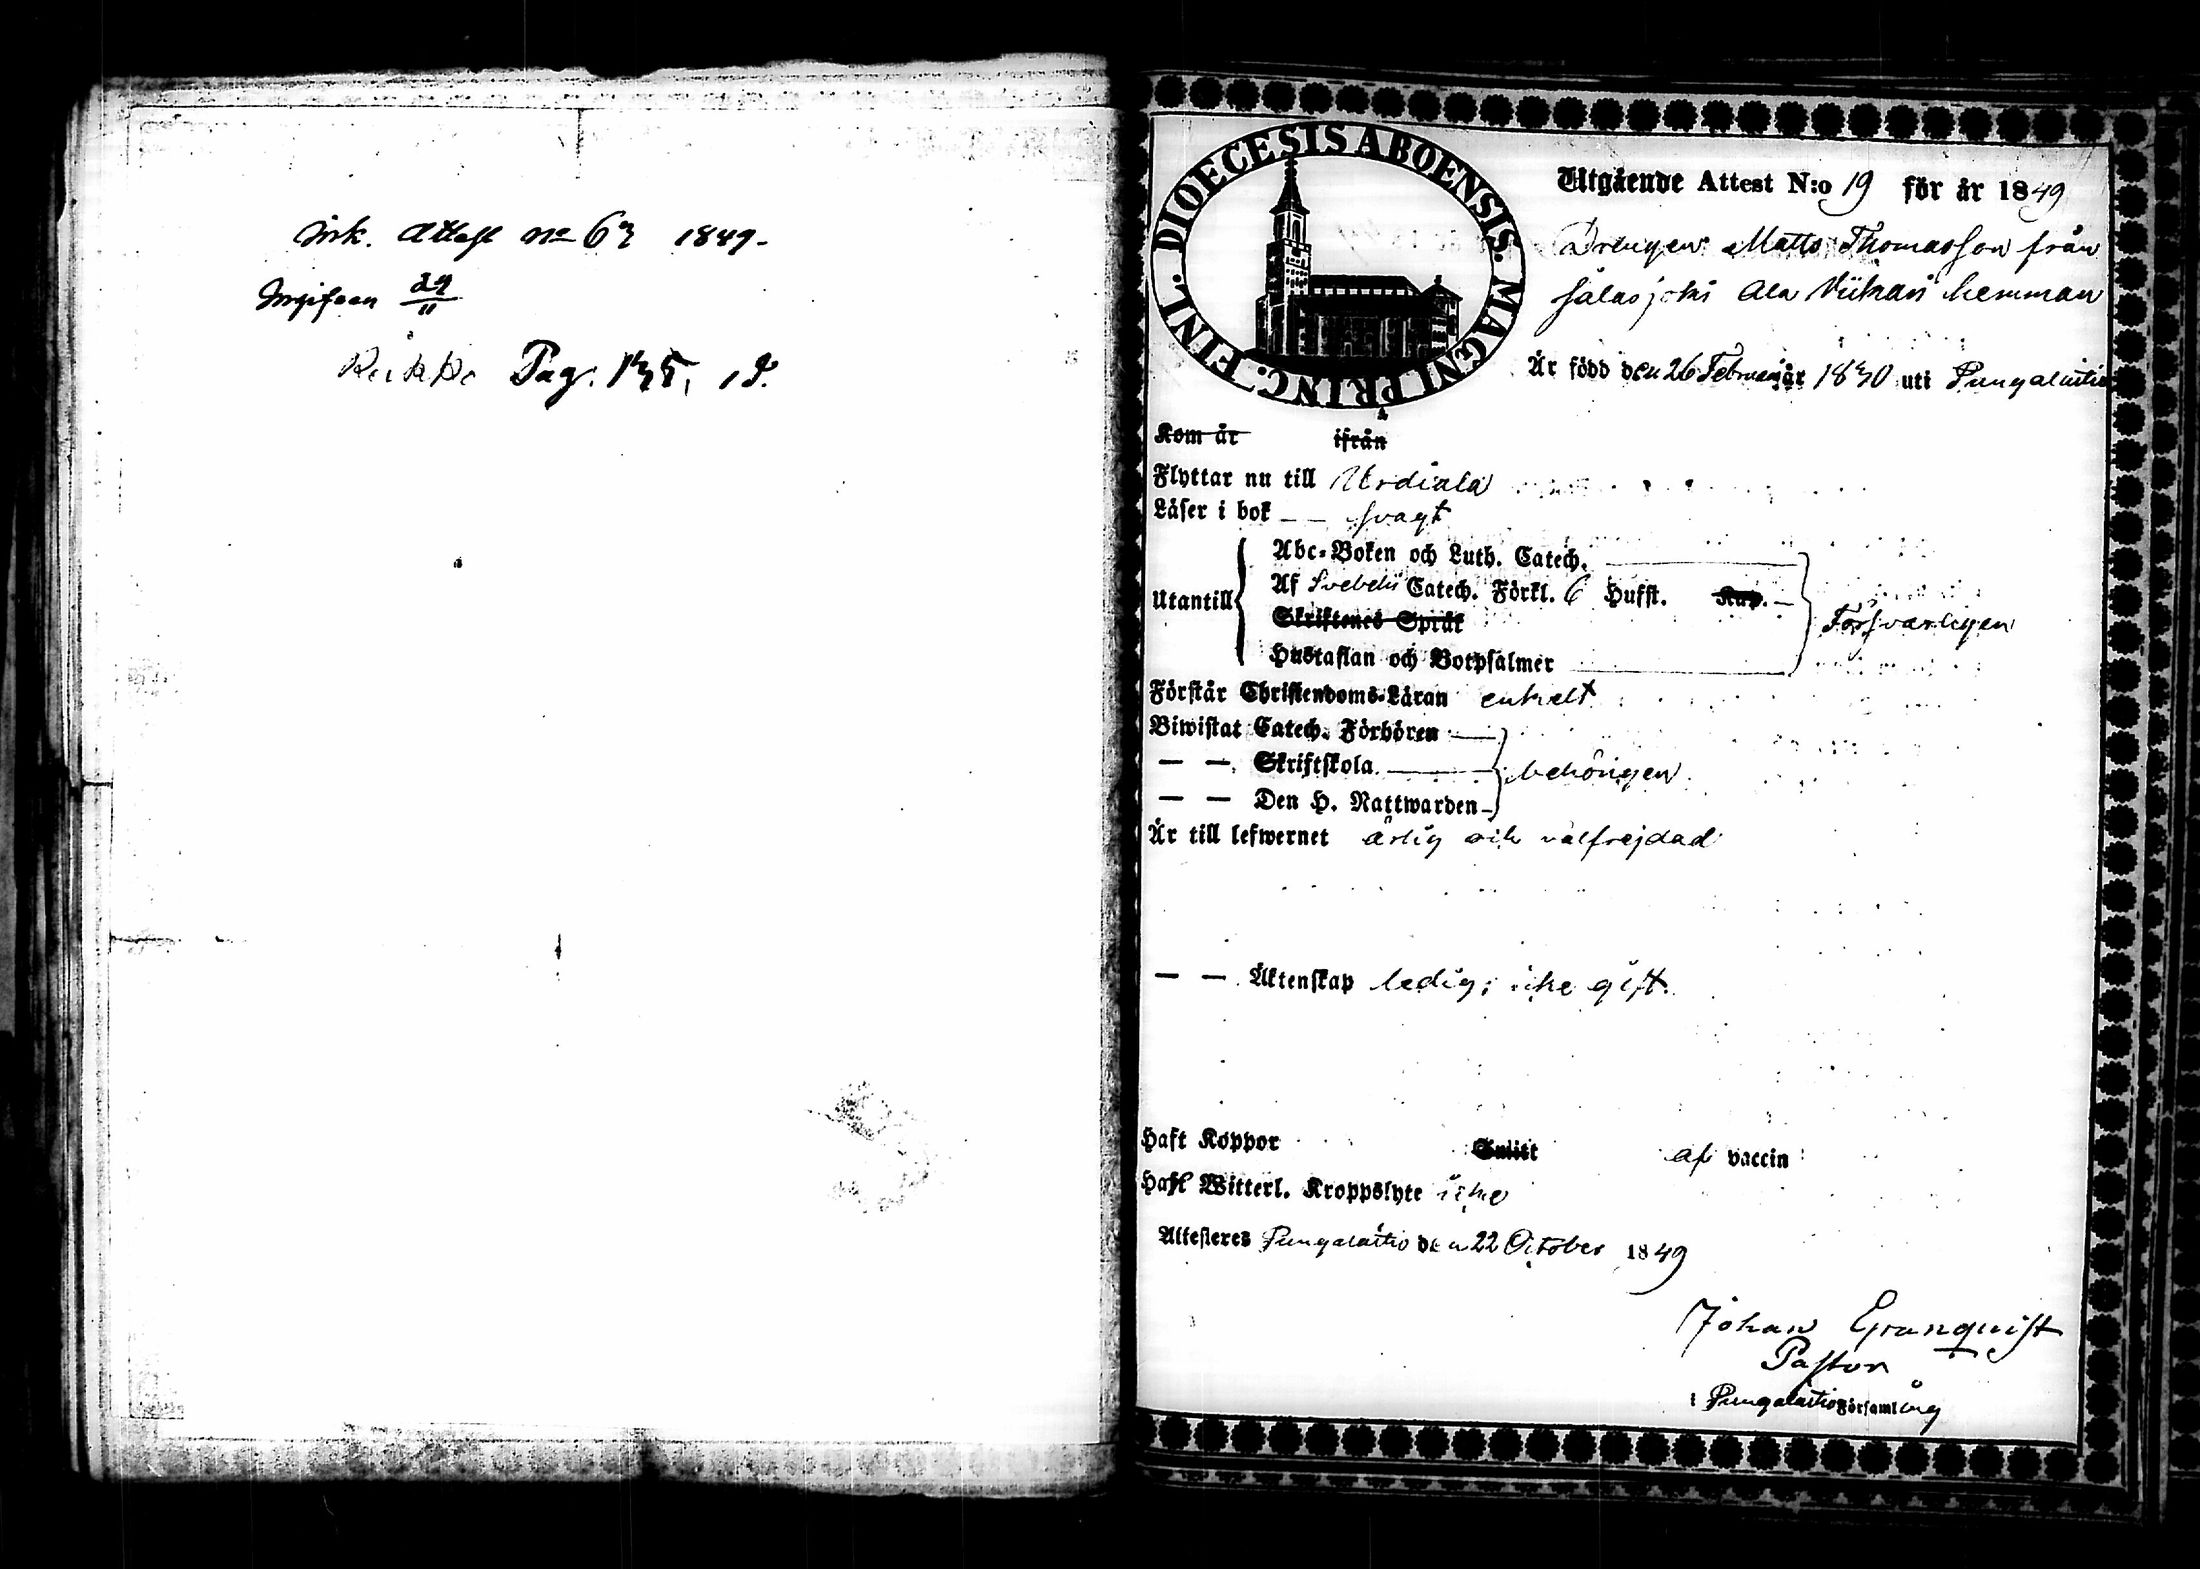 Ink. Attest No 63 1849.
Ingifven 24/11
Pag. 135, 19.
DIOECESIS ABOENSIS. MAGNI PRINC. FINL.
Utgående Attest N:o 19 för år 1849
Drengen Matts Thomasson från
Salasjoki Ala Viikari hemman
Är född den 26 Februari år 1830 uti Pungalaitio
Kom år ifrån
Flyttar nu till Urdiala
Läser i bok svagt
Utantill
Abc-Boken och Luth. Catech.
Af Svebelii Catech. Förkl. 6 Hufst. Kap.
Skriftenes Språk
Hustaflan och Botpsalmer
Försvarligen
Förstår Christendoms-Läran enkelt
Biwistat Catech. Förhören
— — Skriftskola behörigen
— — Den H. Nattwarden
Är till lefwernet ärlig och välfrejdad
— — Äktenskap ledig; icke gift.
Haft Koppor Smitt af vaccin
Haft Witterl. Kroppslyte icke
Attesteres Pungalaitio den 22 October 1849
Johan Granquist
Pastor
i Pungalaitio Församling